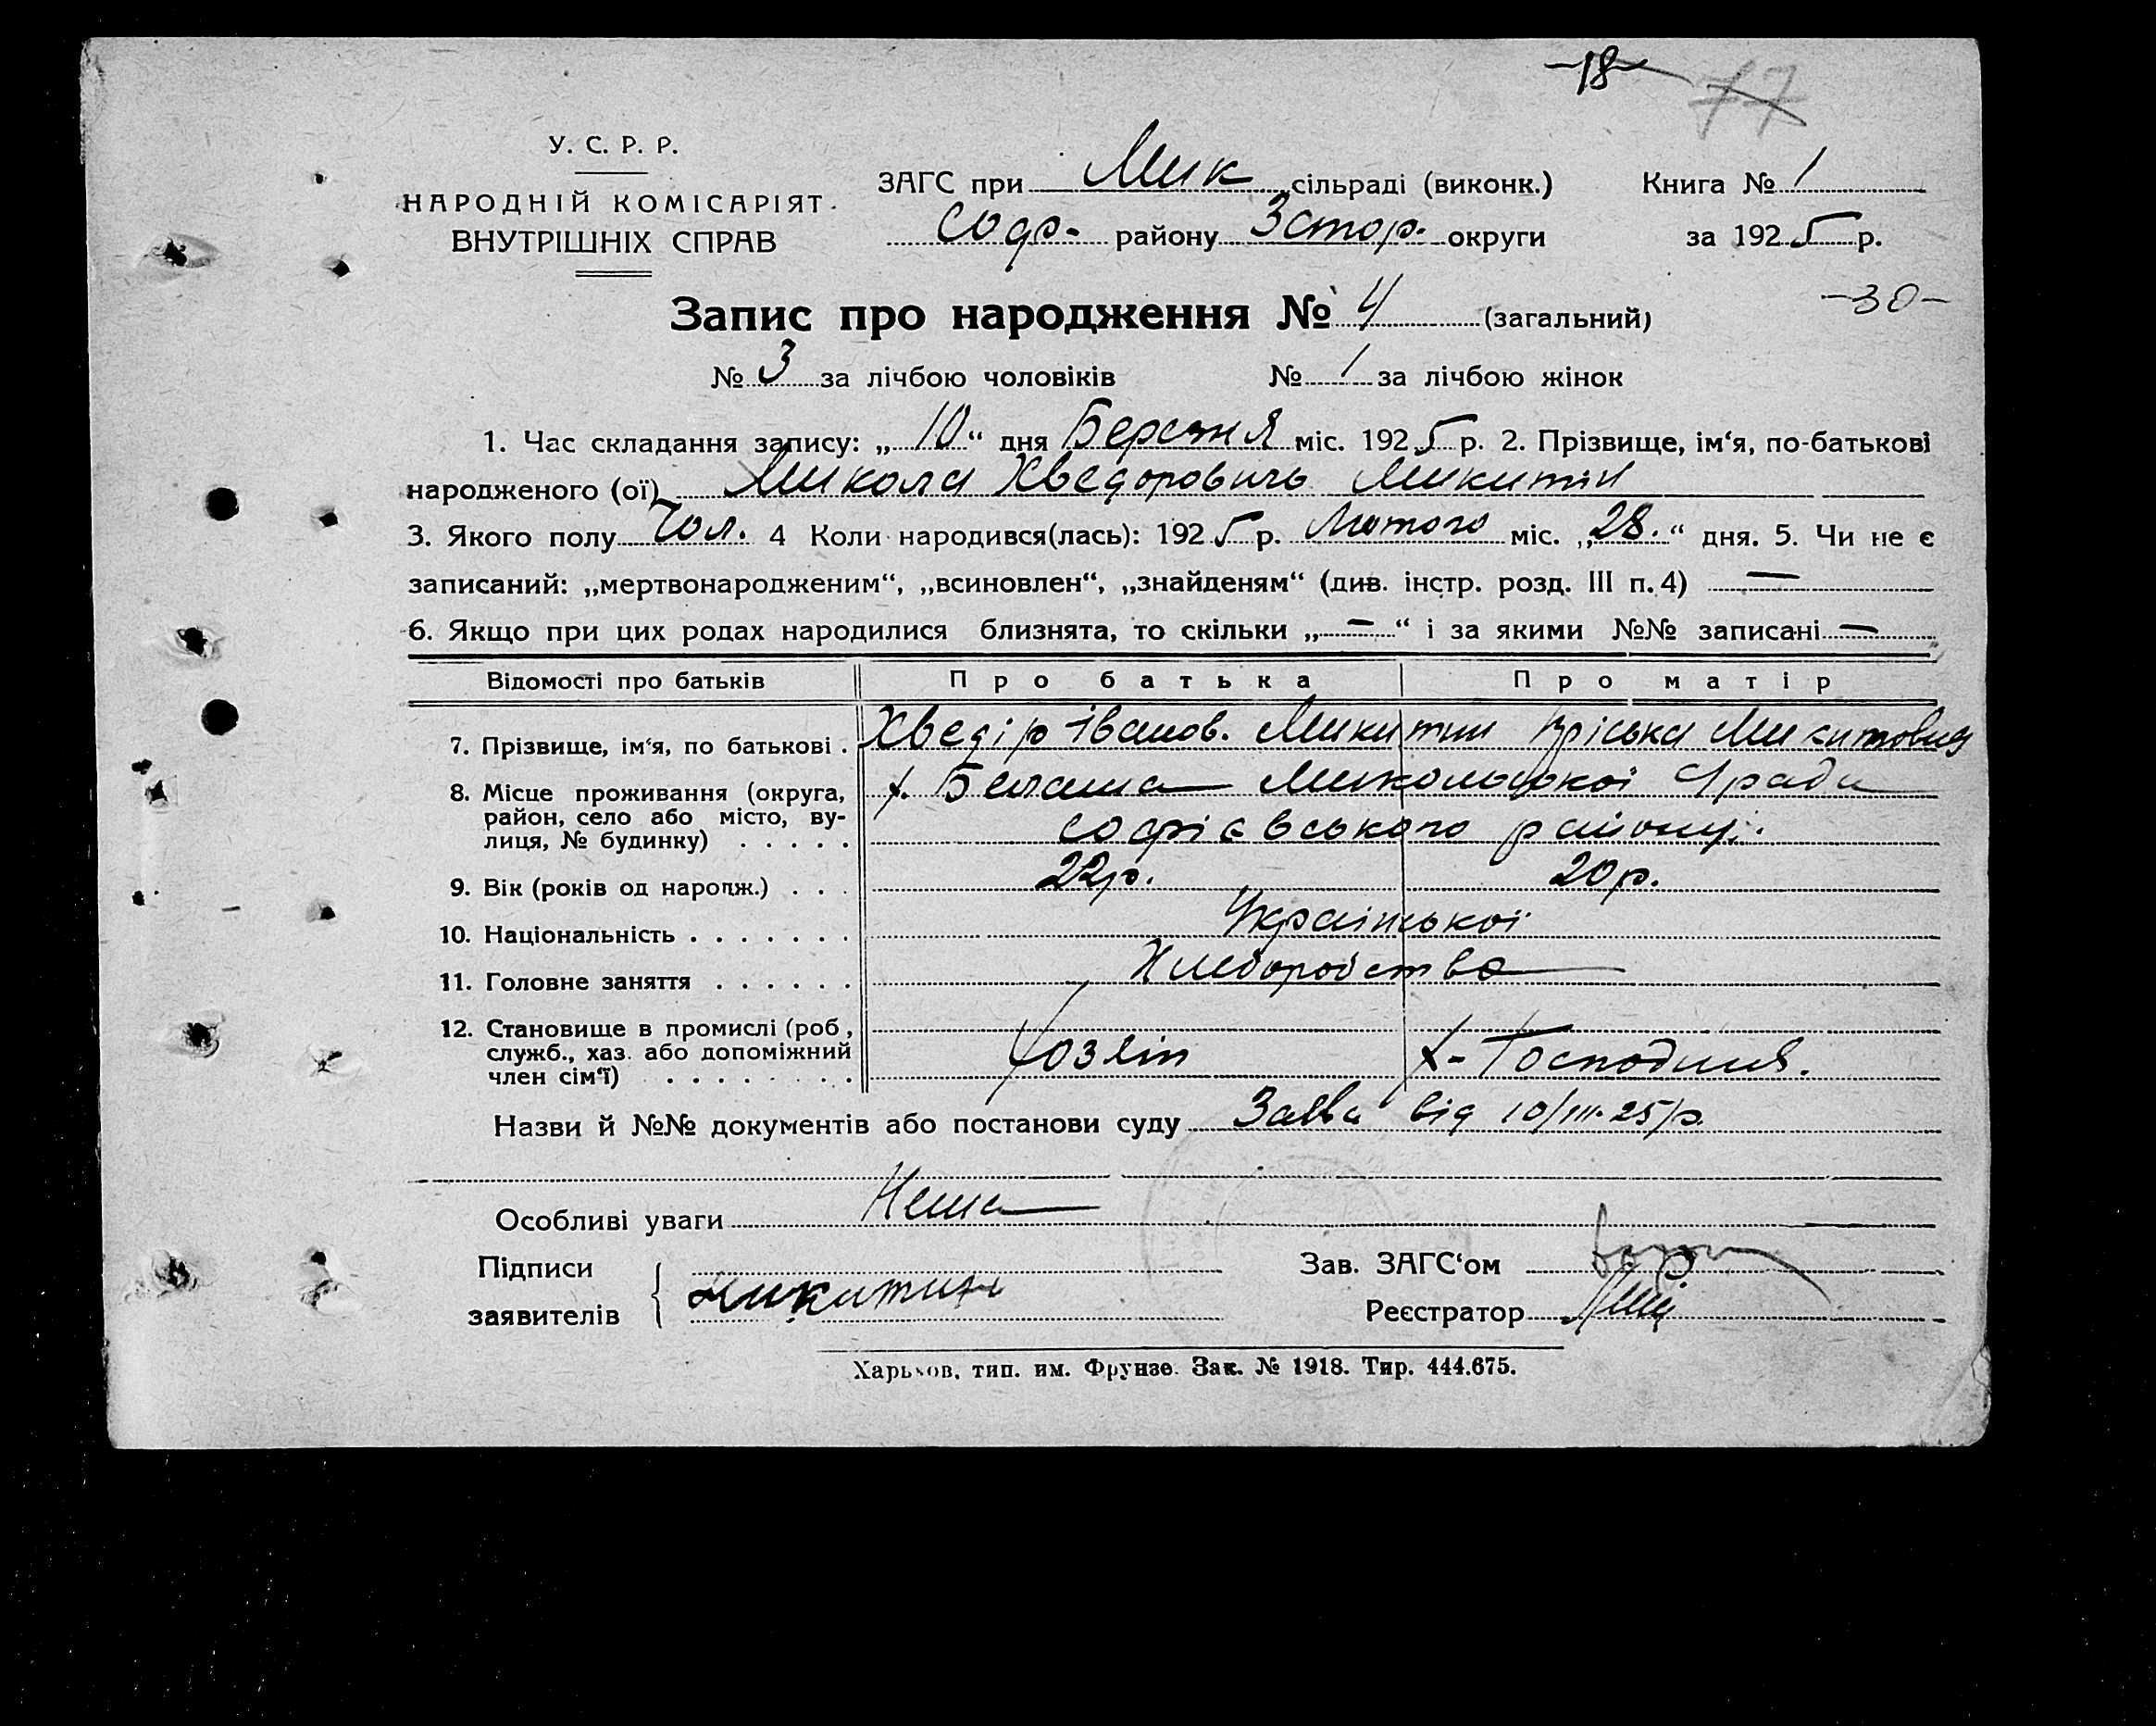 -18- 77
У. С. Р. Р.
НАРОДНІЙ КОМІСАРІЯТ
ВНУТРІШНІХ СПРАВ
ЗАГС при Мик сільраді (виконк.) Книга № 1
Софр. району Зстор. округи за 1925 р.
-30-
Запис про народження № 4 (загальний)
№ 3 за лічбою чоловіків № 1 за лічбою жінок
1. Час складання запису: „10“ дня Березня міс. 1925 р. 2. Прізвище, ім‘я, по-батькові
народженого (ої) Микола Хведорович Микитин
3. Якого полу Чол. 4 Коли народився(лась): 1925 р. Лютого міс. „28.“ дня. 5. Чи не є
записаний: „мертвонародженим“, „всиновлен“, „знайденям“ (див. інстр. розд. III п. 4) —
6. Якщо при цих родах народилися близнята, то скільки „—“ і за якими №№ записані —
Відомості про батьків Про батька Про матір
7. Прізвище, ім‘я, по батькові . Хведір Іванов. Микитин Пріська Микитовна
8. Місце проживання (округа, район, село або місто, вулиця, № будинку) . . . . . х. Микольської С/ради
софієвського району.
9. Вік (років од народж.) . . . 22р. 20р.
10. Національність . . . . . . . Української
11. Головне заняття . . . . . . Хлеборобство
12. Становище в промислі (роб., служб., хаз. або допоміжний член сім‘ї) . . . . . . . . Хозяїн х- Господиня.
Назви й №№ документів або постанови суду Заява від 10/III-25/р.
Особливі уваги Нема
Підписи заявителів Микитин
Зав. ЗАГС‘ом
Реєстратор
Харьков, тип. им. Фрунзе. Зак. № 1918. Тир. 444.675.